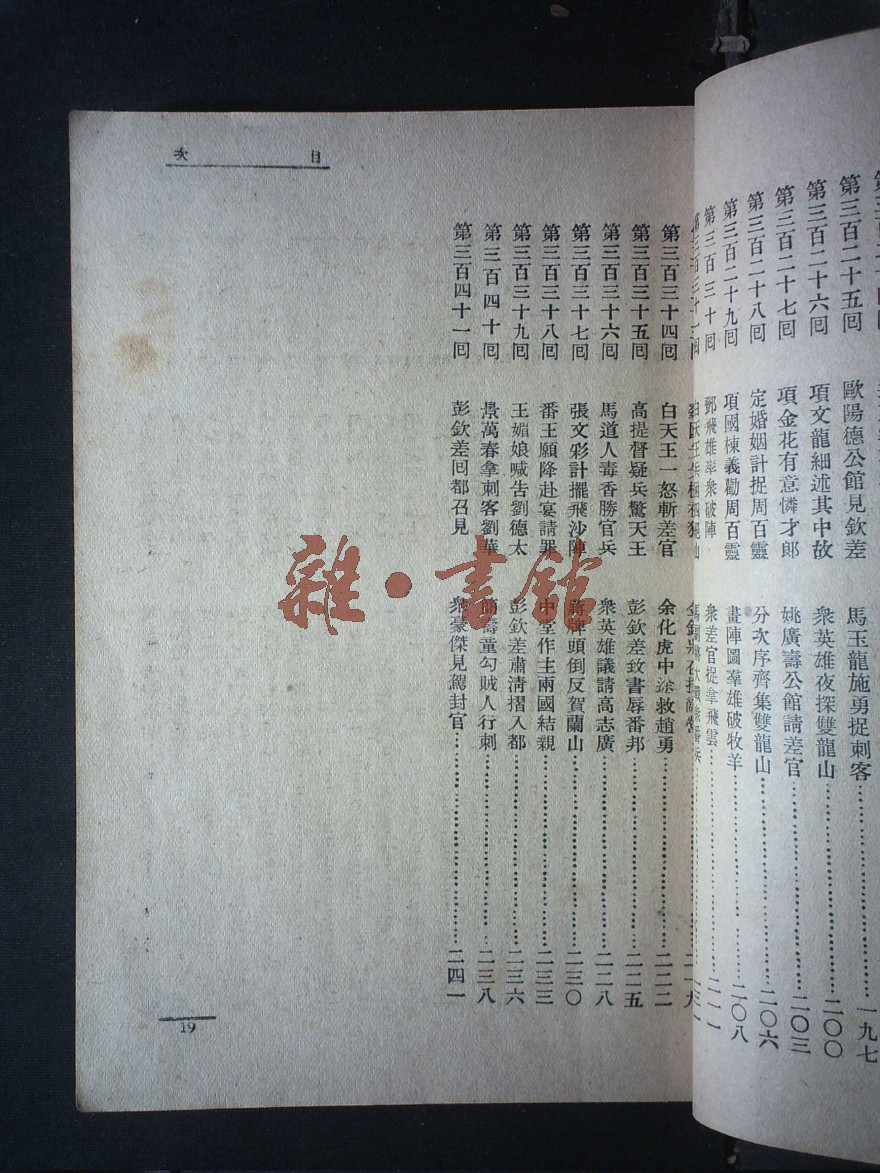 第三百二十五囘 歐陽德公館見欽差 馬玉龍施勇捉刺客 一九七
第三百二十六囘 項文龍細述其中故 衆英雄夜探雙龍山 二〇〇
第三百二十七囘 項金花有意憐才郎 姚廣壽公館請差官 二〇三
第三百二十八囘 定婚姻計捉周百靈 分次序齊集雙龍山 二〇六
第三百二十九囘 項國棟義勸周百靈 畫陣圖羣雄破牧羊 二〇八
第三百三十囘 鄧飛雄率衆破陣 衆差官捉拿飛雲 二一一
目次
第三百三十四囘 白天王一怒斬差官 余化虎中途救趙勇 二二二
第三百三十五囘 高提督疑兵驚天王 彭欽差致書辱番邦 二二五
第三百三十六囘 馬道人毒香勝官兵 衆英雄議請高志廣 二二八
第三百三十七囘 張文彩計擺飛沙陣 蔣牌頭倒反賀蘭山 二三〇
第三百三十八囘 番王願降赴宴請罪 中堂作主兩國結親 二三三
第三百三十九囘 王媚娘喊告劉德太 彭欽差肅淸摺入都 二三六
第三百四十囘 景萬春拿刺客劉華 壽童勾賊人行刺 二三八
第三百四十一囘 彭欽差囘都召見 衆豪傑見駕封官 二四一
19
雜·書館